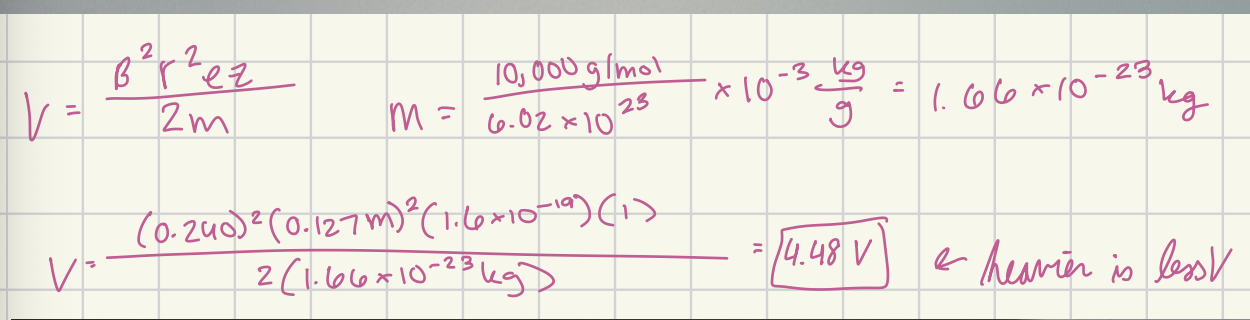 V = B²r²ez / 2m    m = 10,000 g/mol / 6.02×10²³ × 10⁻³ kg/g = 1.66×10⁻²³ kg
V = (0.240)²(0.127m)²(1.6×10⁻¹⁹)(1) / 2(1.66×10⁻²³ kg) = 4.48 V ← heavier is less V